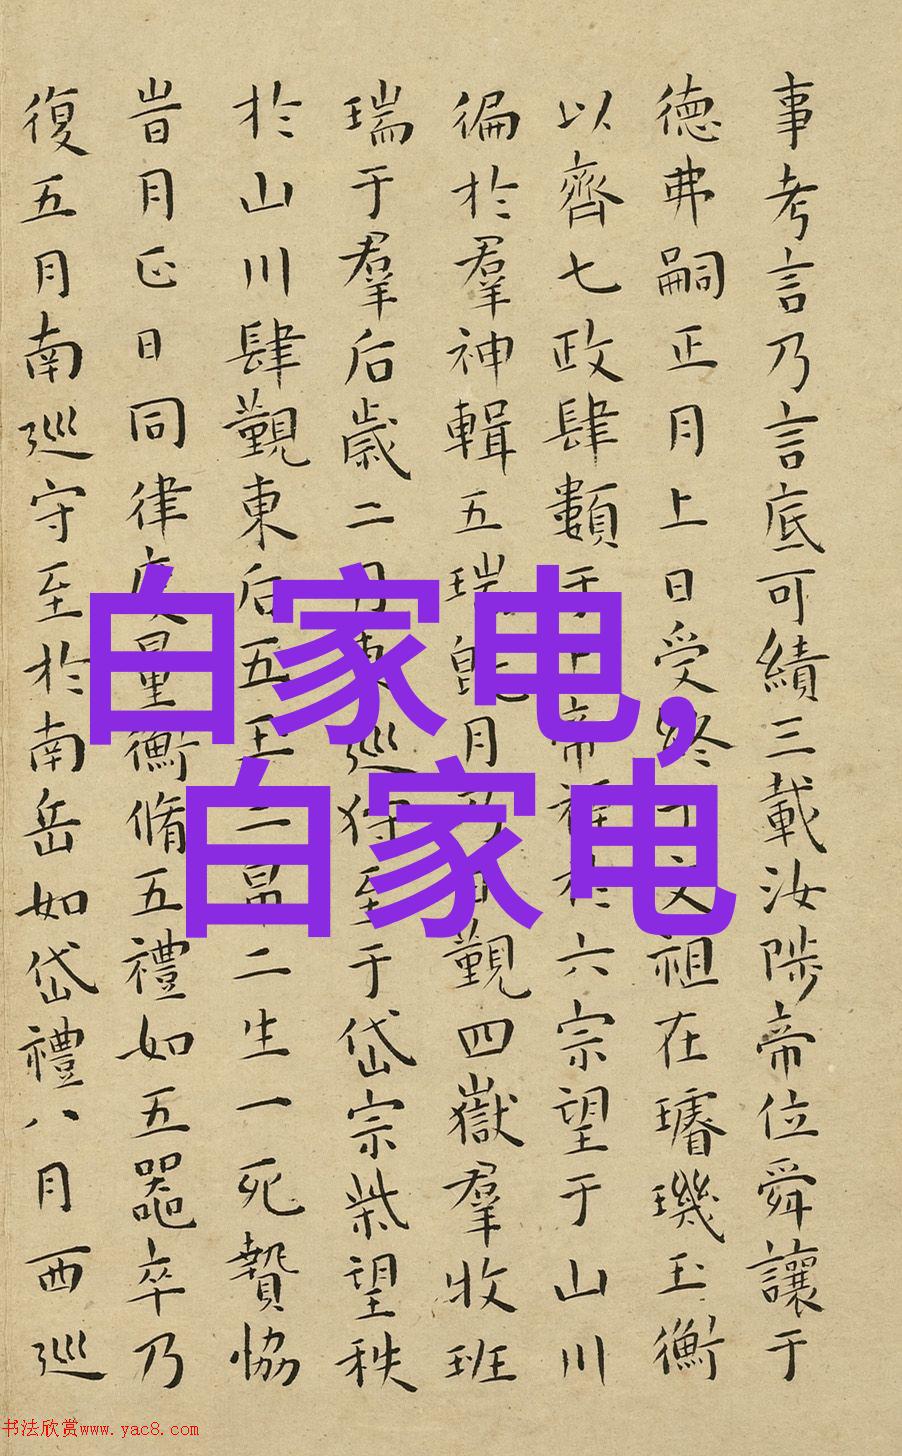 事考言乃言底可績三載汝陟帝位舜讓于
德弗嗣正月上日受終于文祖在璿璣玉衡
以齊七政肆類于上帝禋於六宗望于山川
徧於羣神輯五瑞旣月乃日覲四嶽羣牧班
瑞于羣后歲二月東巡狩至于岱宗柴望秩
於山川肆覲東后五玉三帛二生一死贄協
旹月正日同律度量衡脩五禮如五器卒乃
復五月南巡守至於南岳如岱禮八月西巡
白家电,
白家电
书法欣赏www.yac8.com